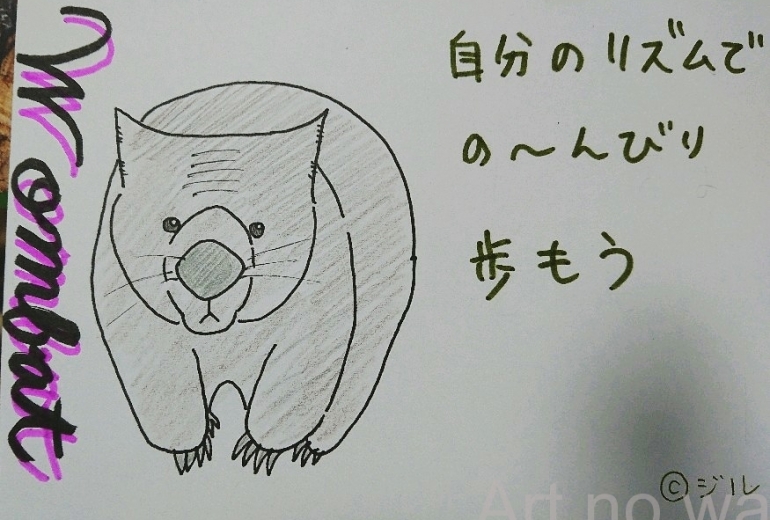 Wombat
自分のリズムで
の〜んびり
歩もう
©ジル
Art no wa